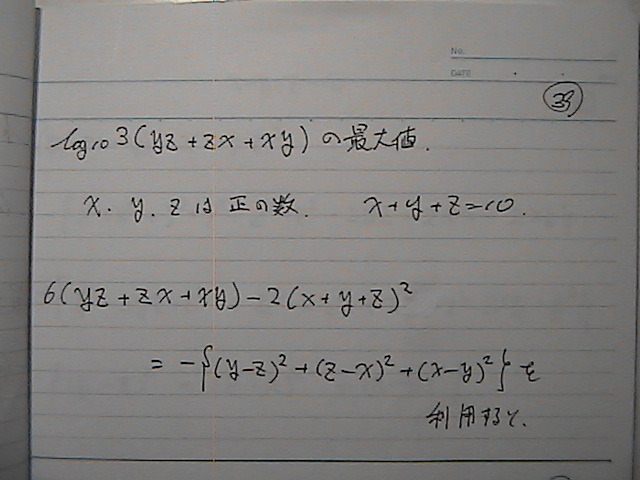 No.
DATE
39
log10 3(yz+zx+xy)の最大値.
x. y. zは正の数. x+y+z=10.
6(yz+zx+xy)-2(x+y+z)²
=-{(y-z)²+(z-x)²+(x-y)²}を
利用すると.